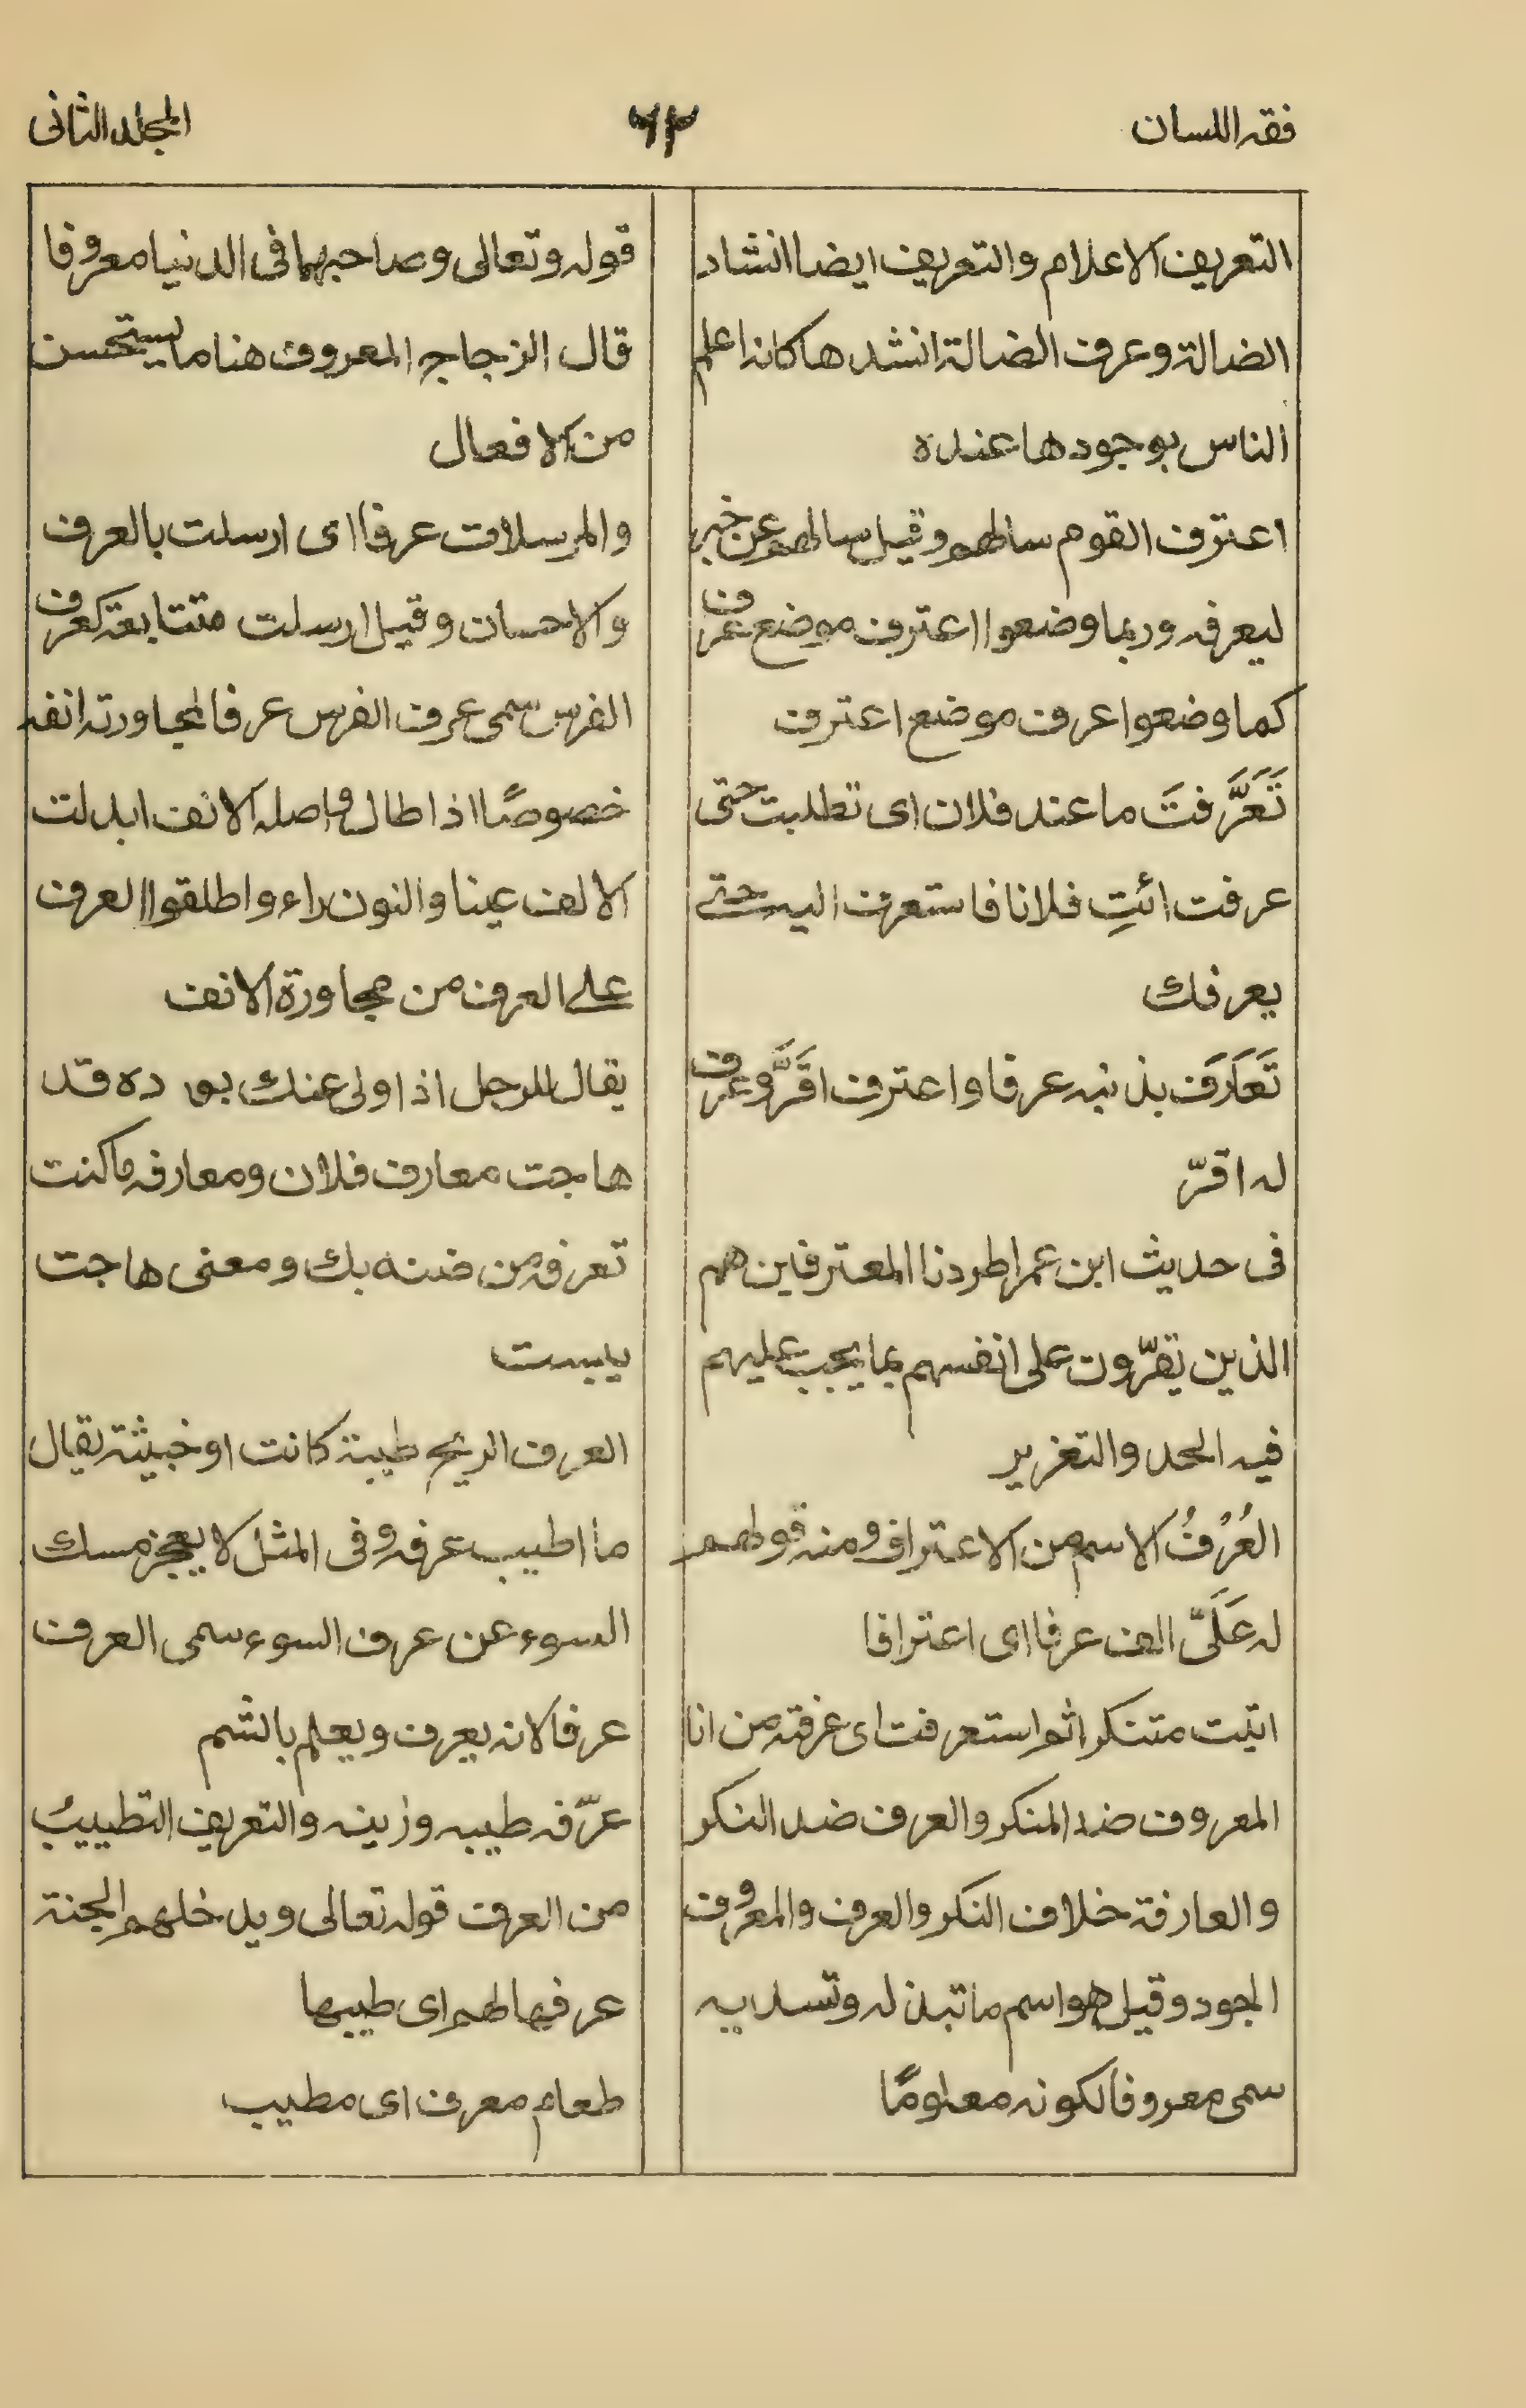 فقه اللسان
٦٢
المجلد الثانى
التعريف الاعلام والتعريف ايضا انشاد
الضالة وعرف الضالة انشدها كانه اعلم
الناس بوجودها عنده
اعترف القوم سالهم وقيل سالهم عن خبر
ليعرفه وربما وضعوا اعترف موضع عرف
كما وضعوا عرف موضع اعترف
تَعَرَّفتَ ما عند فلان اى تطلبت حتى
عرفت ائتِ فلانا فاستعرف اليه حتى
يعرفك
تَعَارَف بذنبه عرفا واعترف اقَرَّ وعرف
له اقرّ
فى حديث ابن عمر اطردنا المعترفين هم
الذين يقرّون على انفسهم بما يجب عليهم
فيه الحد والتغزير
العُرْفُ الاسم من الاعتراف ومنه قولهم
له عَلَىَّ الف عرفا اى اعترافا
اتيت متنكرا ثم استعرفت اى عرفته من انا
المعروف ضد المنكر والعرف ضد النكر
والعارفة خلاف النكر والعرف والمعروف
الجود وقيل هو اسم ما تبذله وتسديه
سمى معروفا لكونه معلومًا
قوله وتعالى وصاحبهما فى الدنيا معروفا
قال الزجاج المعروف هنا ما يستحسن
من الافعال
والمرسلات عرفا اى ارسلت بالعرف
والاحسان وقيل ارسلت متتابعة كعرف
الفرس سمى عرف الفرس عرفا لمجاورته انفه
خصوصًا اذا طال واصله الانف ابدلت
الالف عينا والنون راء واطلقوا العرف
على العرف من مجاورة الانف
يقال للرجل اذا ولى عنك بوده قد
هاجت معارف فلان ومعارفه ما كنت
تعرفه من ضنه بك ومعنى هاجت
يبست
العرف الريح طيبة كانت او خبيثة يقال
ما اطيب عرفه وفى المثل لا يعجز مسك
السوء عن عرف السوء سمى العرف
عرفا لانه يعرف ويعلم بالشم
عرّفه طيبه وزينه والتعريف التطييبُ
من العرف قوله تعالى ويدخلهم الجنة
عرفها لهم اى طيبها
طعام معرف اى مطيب